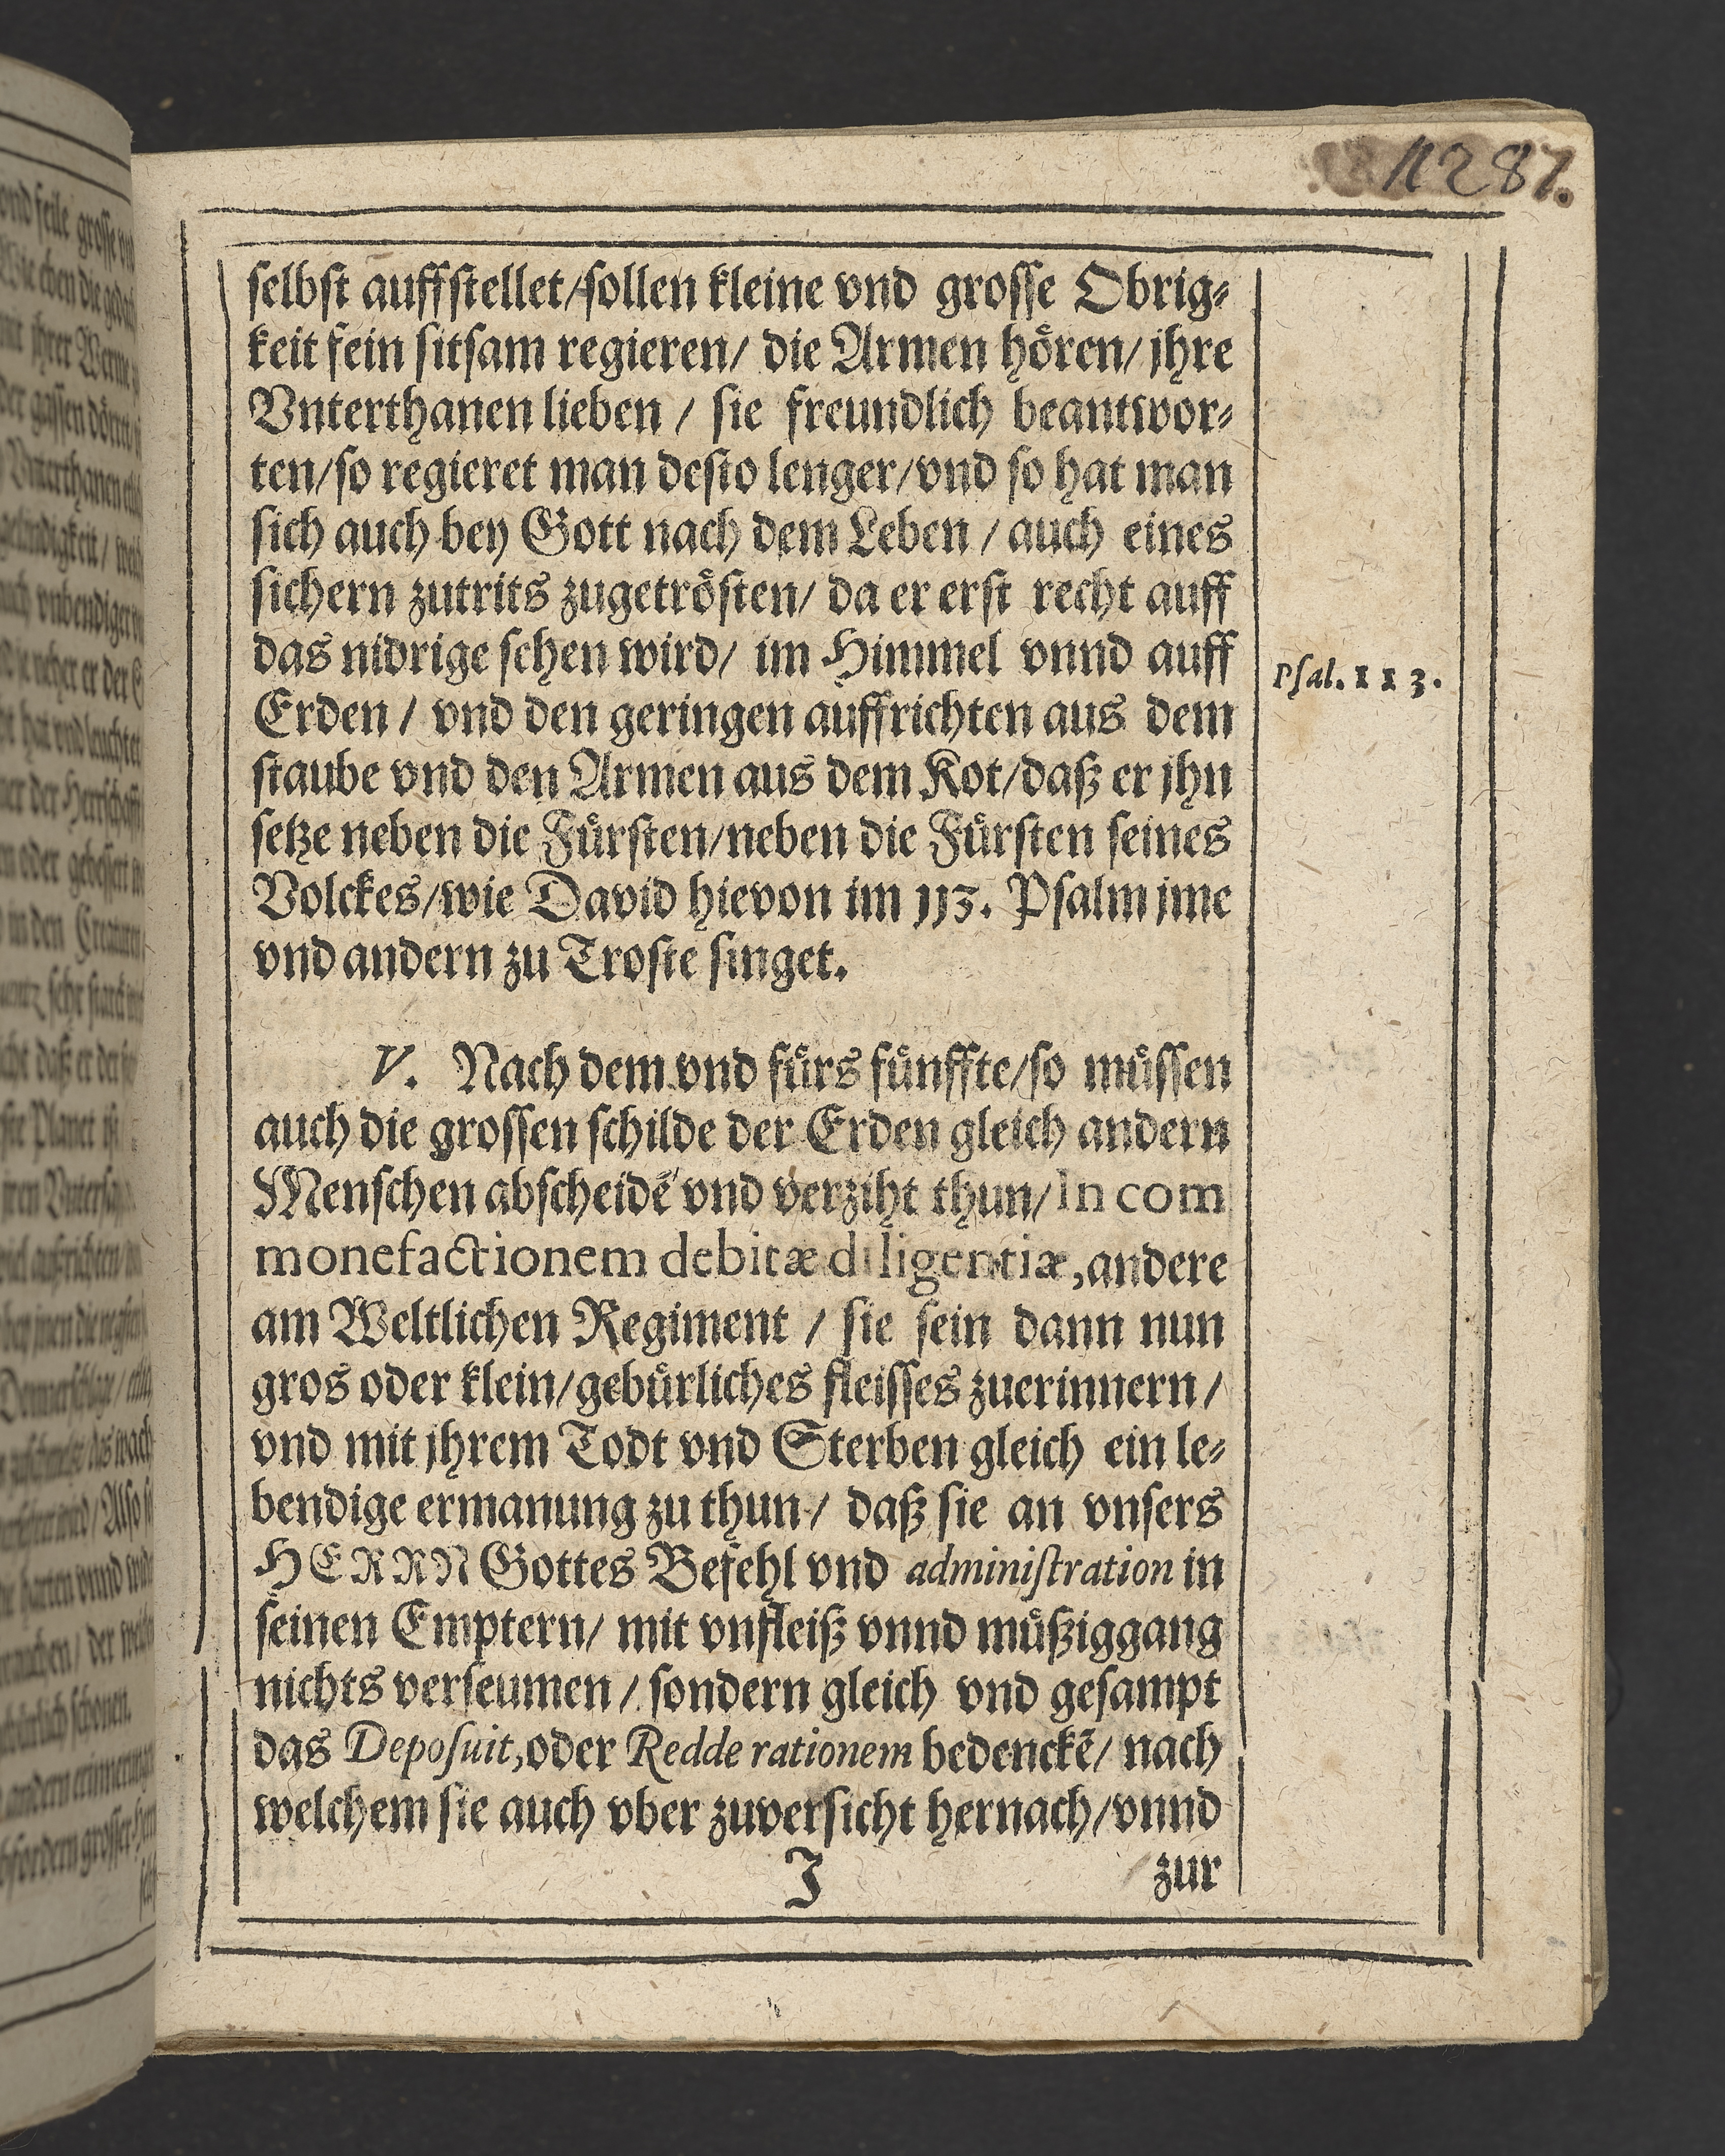 11287.
selbst auffstellet/sollen kleine vnd grosse Obrig⸗
keit fein sitsam regieren/ die Armen hoͤren/ jhre
Vnterthanen lieben / sie freundlich beantwor⸗
ten/so regieret man desto lenger/vnd so hat man
sich auch bey Gott nach dem Leben / auch eines
sichern zutrits zugetroͤsten/ da er erst recht auff
das nidrige sehen wird/ im Himmel vnnd auff
Psal. 113.
Erden / vnd den geringen auffrichten aus dem
staube vnd den Armen aus dem Kot/daß er jhn
setze neben die Fuͤrsten/neben die Fuͤrsten seines
Volckes/wie David hievon im 113. Psalm jme
vnd andern zu Troste singet.
V. Nach dem vnd fuͤrs fuͤnffte/so muͤssen
auch die grossen schilde der Erden gleich andern
Menschen abscheidē vnd verziht thun/In com
monefactionem debitæ diligentiæ,andere
am Weltlichen Regiment / sie sein dann nun
gros oder klein/gebuͤrliches fleisses zuerinnern/
vnd mit jhrem Todt vnd Sterben gleich ein le⸗
bendige ermanung zu thun/ daß sie an vnsers
HERRN Gottes Befehl vnd administration in
seinen Emptern/ mit vnfleiß vnnd muͤßiggang
nichts verseumen / sondern gleich vnd gesampt
das Deposuit,oder Redde rationem bedenckē/ nach
welchem sie auch vber zuversicht hernach/vnnd
J
zur